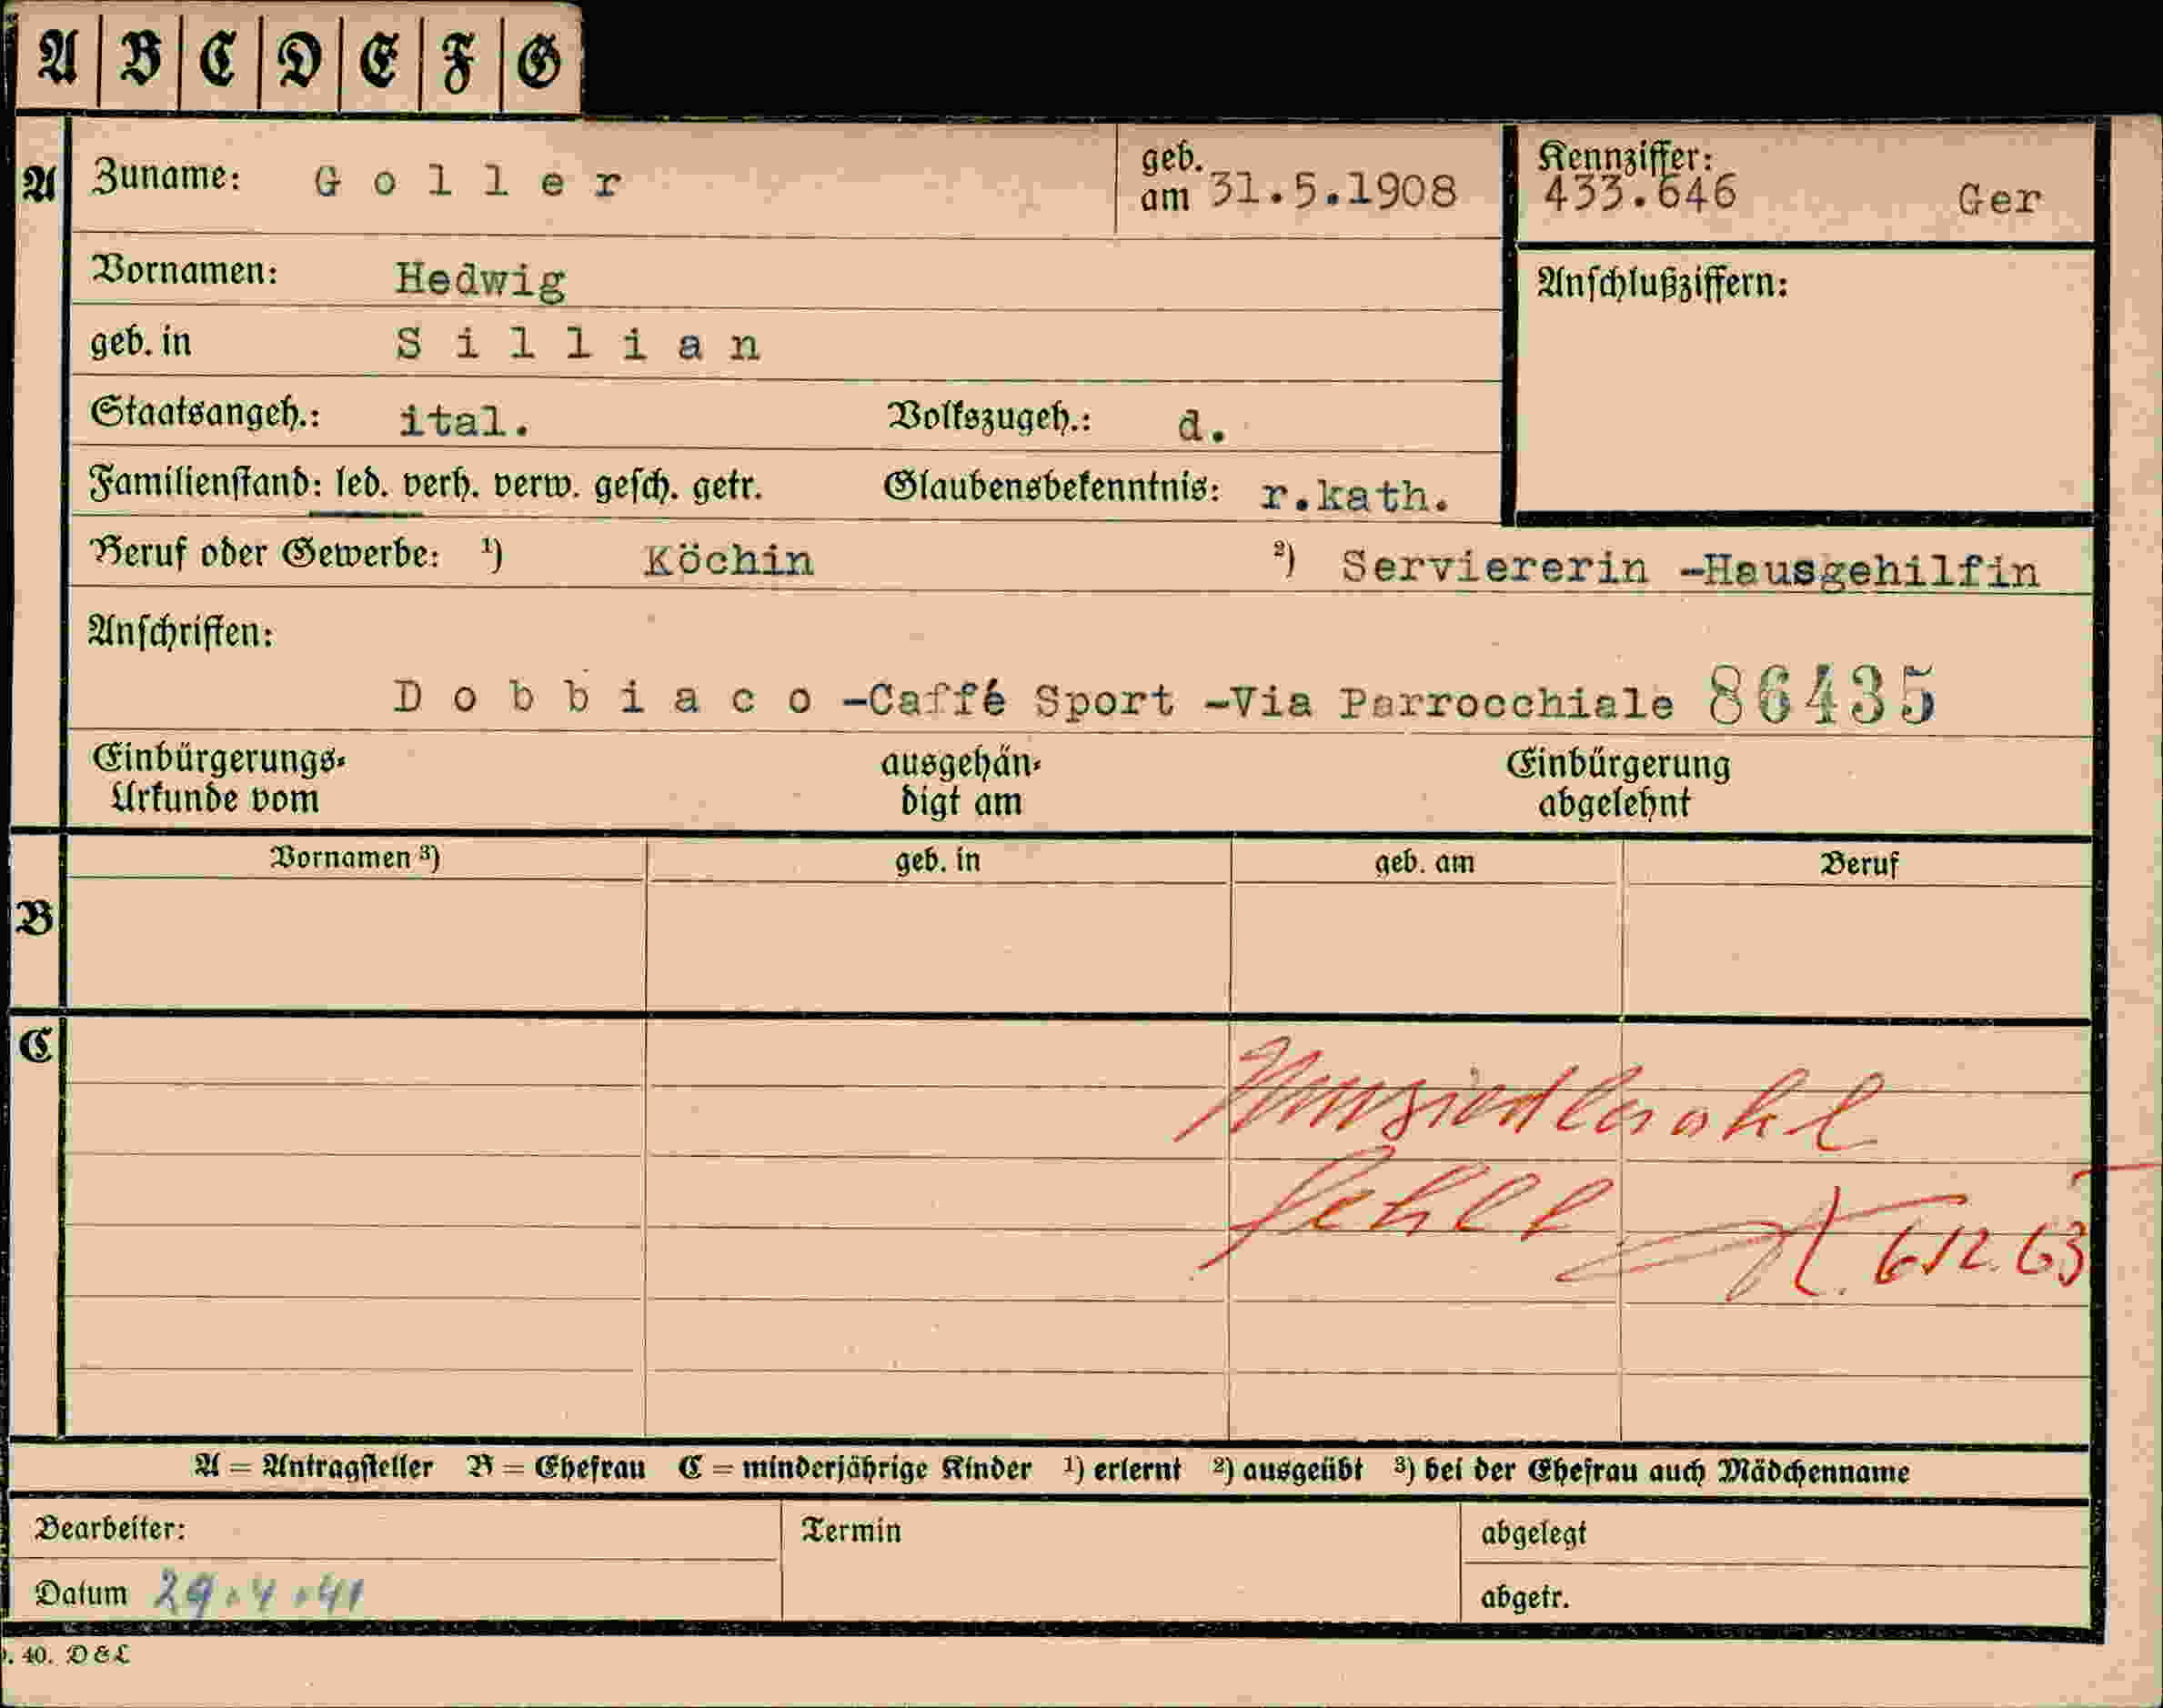 A B C D E F G
A Zuname: Goller geb. am 31.5.1908 Kennziffer: 433.646 Ger
Vornamen: Hedwig Anschlußziffern:
geb. in Sillian
Staatsangeh.: ital. Volkszugeh.: d.
Familienstand: led. verh. verw. gesch. getr. Glaubensbekenntnis: r.kath.
Beruf oder Gewerbe: ¹) Köchin ²) Serviererin -Hausgehilfin
Anschriften:
Dobbiaco -Caffé Sport -Via Parrocchiale 86435
Einbürgerungs- ausgehän- Einbürgerung
Urkunde vom digt am abgelehnt
Vornamen ³) geb. in geb. am Beruf
B
C
fehlt 6/12.63
A = Antragsteller B = Ehefrau C = minderjährige Kinder ¹) erlernt ²) ausgeübt ³) bei der Ehefrau auch Mädchenname
Bearbeiter: Termin abgelegt
Datum 29.4.41 abgetr.
. 40. D & L